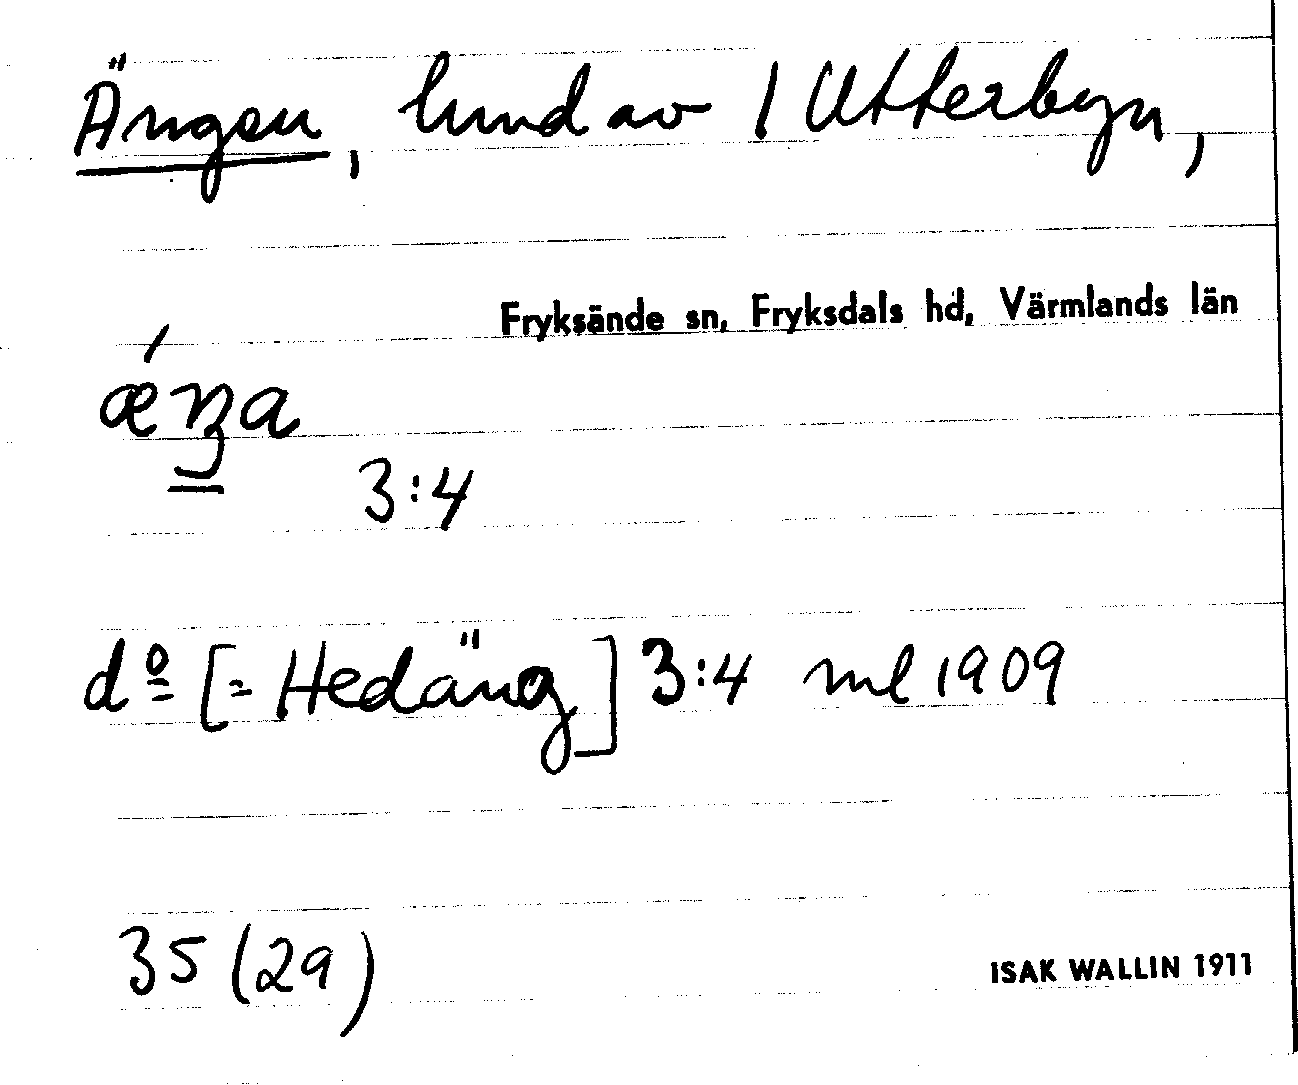 Ängen, hmd av 1 Utterbyn,
Fryksände sn, Fryksdals hd, Värmlands län
3:4
dº [= Hedäng] 3:4 ml 1909
35 (29)
ISAK WALLIN 1911